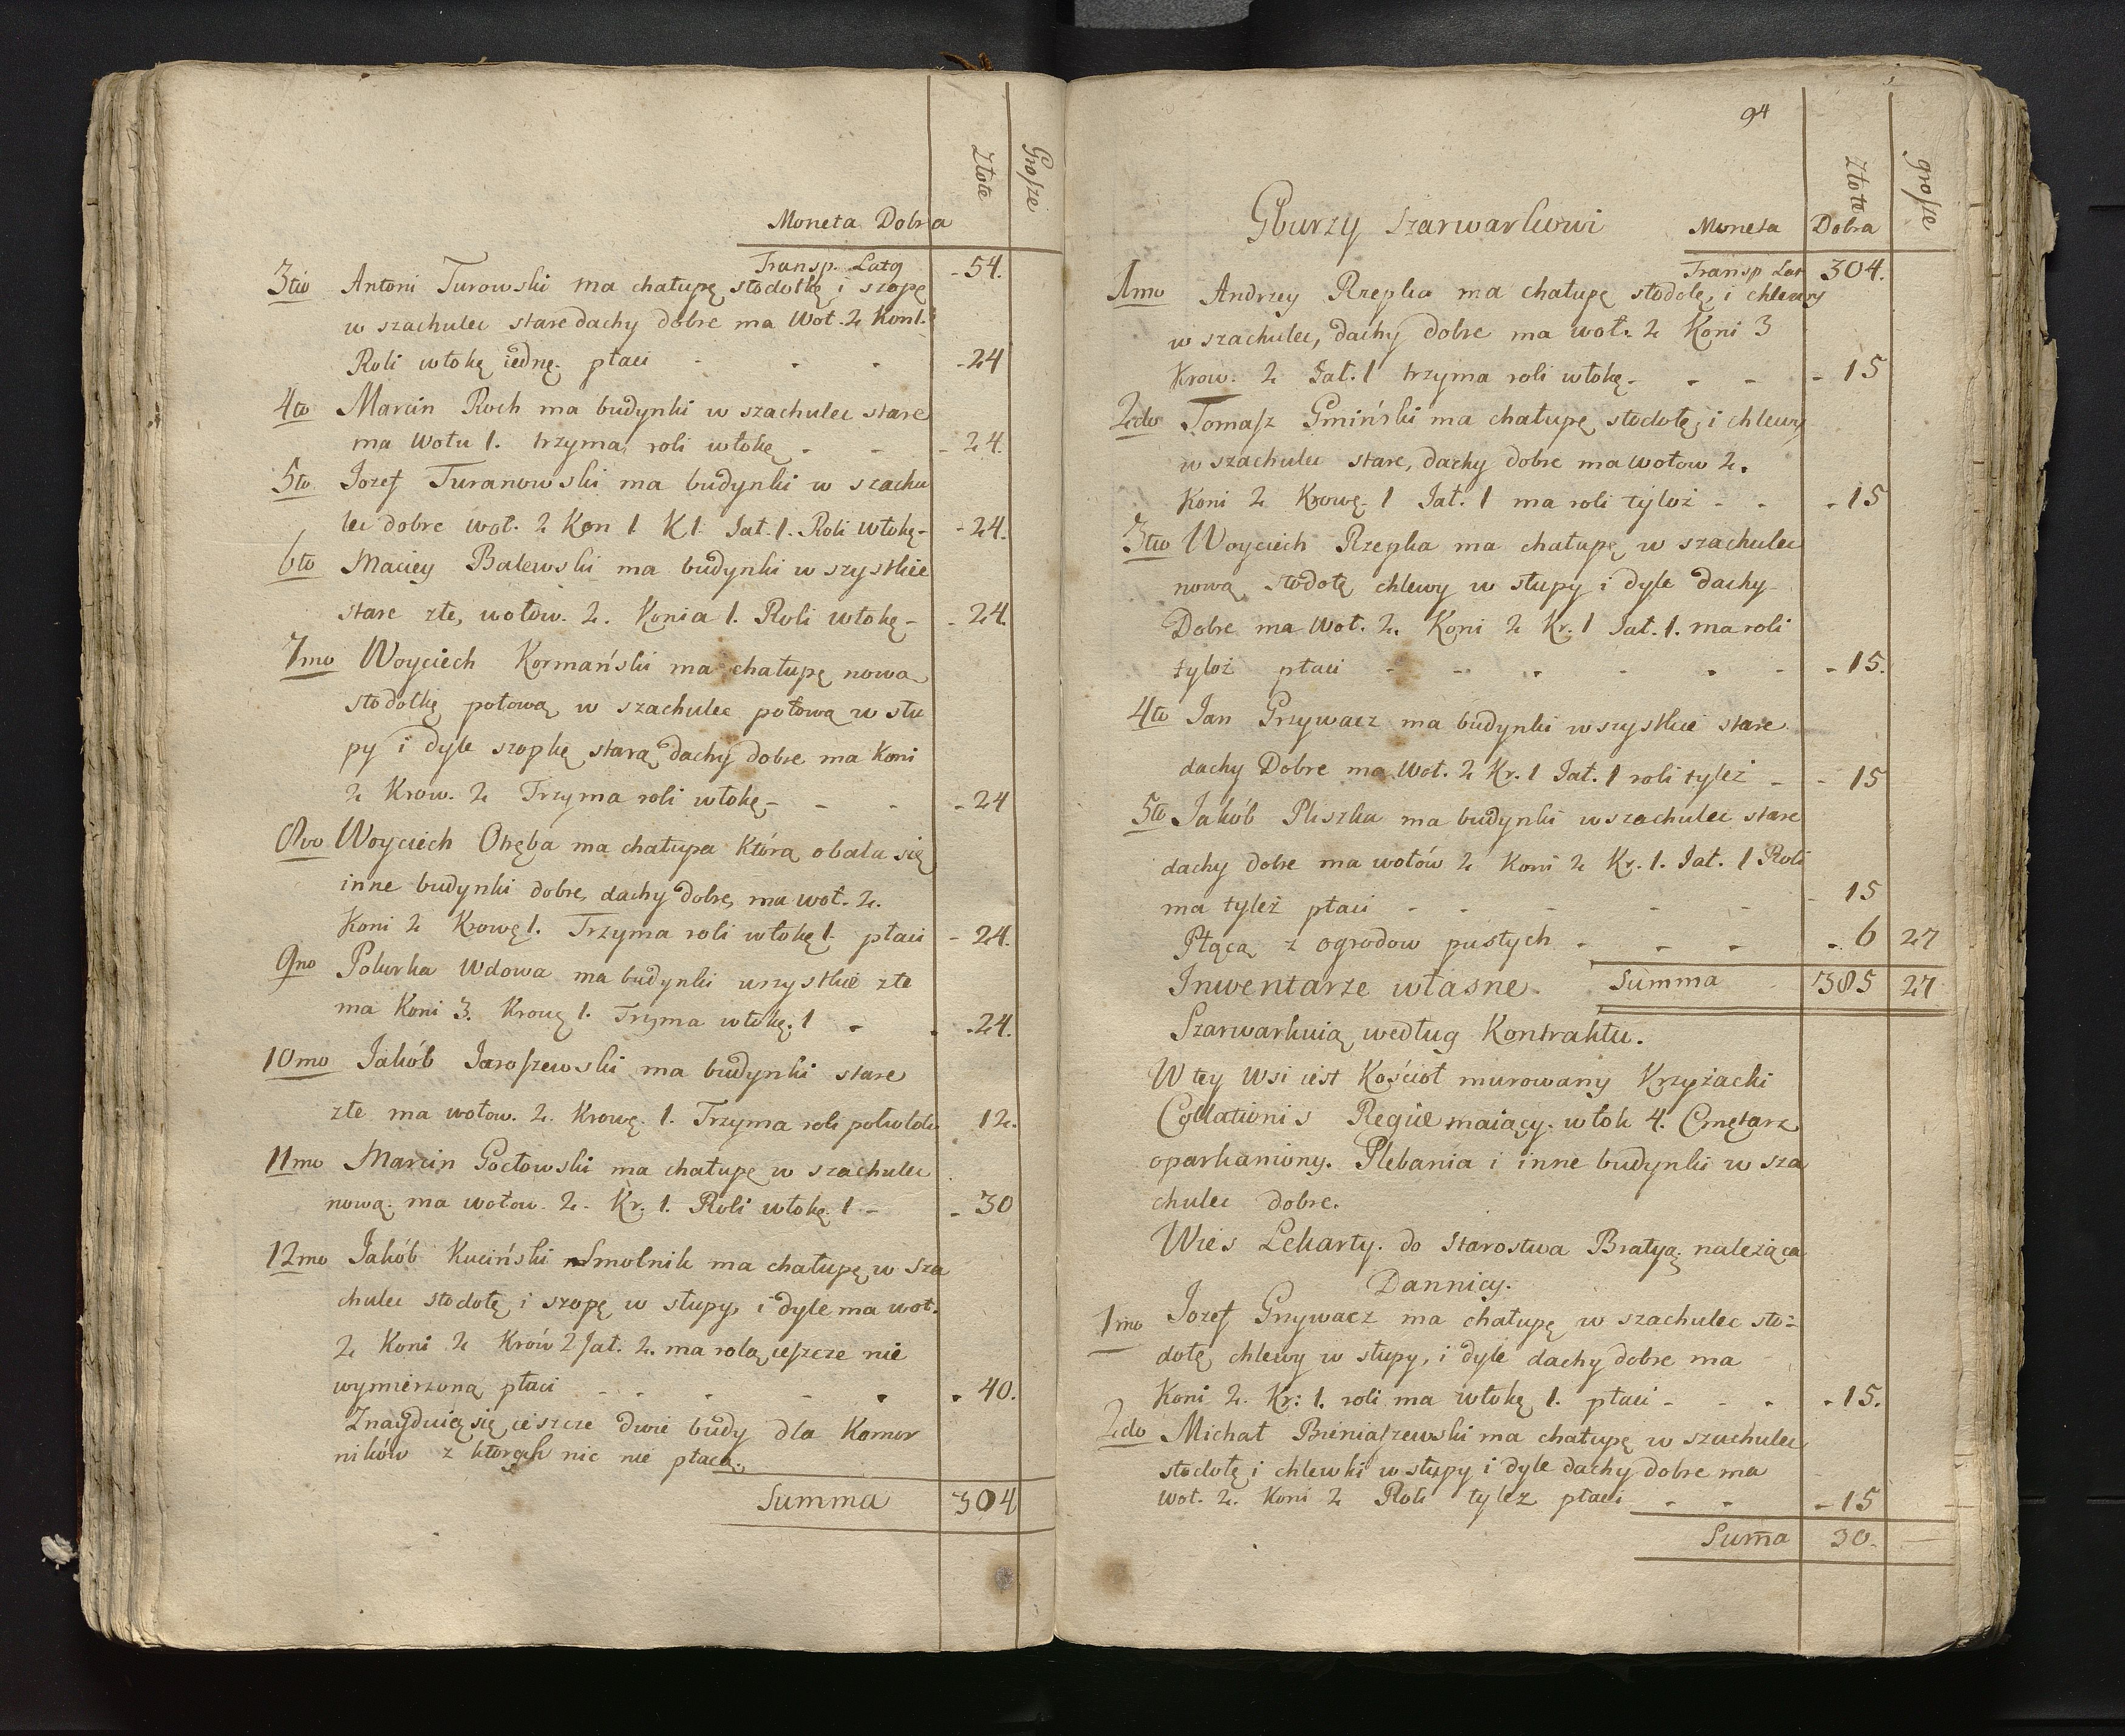 Złote
Grosze
Moneta Dobra
Transp. Latq -54.
3tio Antoni Turowski ma chałupę stodołkę i szopę
w szachulec stare dachy dobre ma Woł. 2 Kon 1.
Roli włokę iednę. płaci - - - -24
4to Marcin Roch ma budynki w szachulec stare
ma Wołu 1. trzyma roli włokę - - -24.
5to Jozef Turanowski ma budynki w szachu
lec dobre woł. 2 Kon 1 K 1. Jał. 1. Roli włokę- -24.
6to Maciey Balewski ma budynki w szystkie
stare złe, wołow. 2. Konia 1. Roli włokę- -24.
7mo Woyciech Kormański ma chałupę nowa
stodołkę połową w szachulec połową w słu
py i dyle szopkę starą dachy dobre ma Koni
2 Krow. 2 Trzyma roli włokę- - - -24
8vo Woyciech Otręba ma chałupa którą obala się
inne budynki dobre, dachy dobre, ma woł. 2.
Koni 2 Krowę 1. Trzyma roli włokę 1 płaci -24.
9no Polurka Wdowa ma budynki wszystkie złe
ma Koni 3. Krowę 1. Trzyma włokę. 1 - - -24.
10mo Jakób Jaroszewski ma budynki stare
złe ma wołow. 2. Krowę. 1. Trzyma roli połwłok 12.
11mo Marcin Gocłowski ma chałupę w szachulec
nową. ma wołow. 2. Kr. 1. Roli włokę. 1 - - 30
12mo Jakób Kuciński Smolnik ma chałupę w sza
chulec stodołę i szopę w słupy, i dyle ma woł.
2 Koni 2 Krów 2 Jał. 2. ma rolą ieszcze nie
wymierzoną płaci - - - - - 40.
Znayduią się ieszcze dwie budy dla Komor
ników z ktorych nic nie płacą.
Summa 304
94
Złote
grosze
Gburzy Szarwarkowi Moneta Dobra
Transp Lat 304.
1mo Andrzey Rzepka ma chałupę stodołę, i chlewy
w szachulec, dachy dobre ma woł. 2 Koni 3
Krow. 2 Jał. 1 trzyma roli włokę- - - - 15
2do Tomasz Gmiński ma chałupę stodołę, i chlewy
w szachulec stare, dachy dobre ma wołow 2.
Koni 2 Krowę. 1 Jał. 1 ma roli tyloż - - - 15
3tio Woyciech Rzepka ma chałupę w szachulec
nową stodołę chlewy w słupy i dyle dachy
Dobre ma Woł. 2. Koni 2 Kr. 1 Jał. 1. ma roli
tyloż płaci - - - - - - - 15.
4to Jan Grzywacz ma budynki wszystkie stare
dachy Dobre ma Woł. 2 Kr. 1 Jał. 1 roli tyleż - - 15
5to Jakób Pliszka ma budynki w szachulec stare
dachy dobre ma wołów 2 Koni 2 Kr. 1. Jał. 1 Roli
ma tyleż płaci - - - - - - 15
Płącą z ogrodow pustych - - - - 6 27
Inwentarze własne. Summa 385 27
Szarwarkuią według Kontraktu.
W tey Wsi iest Kościoł murowany Krzyżacki
Collationis Regiæ maiący. włok 4. Cmętarz
oparkaniony. Plebania i inne budynki w sza
chulec dobre.
Wies Lekarty. do Starostwa Bratya. należąca
Dannicy.
1mo Jozef Grzywacz ma chałupę w szachulec sto-
dołę chlewy w słupy, i dyle dachy dobre ma
Koni 2. Kr: 1. roli ma włokę 1. płaci - - - - 15.
2do Michał Bieniaszewski ma chałupę w szachulec
stodołę i chlewki w słupy i dyle dachy dobre ma
woł. 2. Koni 2 Roli tyleż płaci - - - 15
Sum̄a 30.